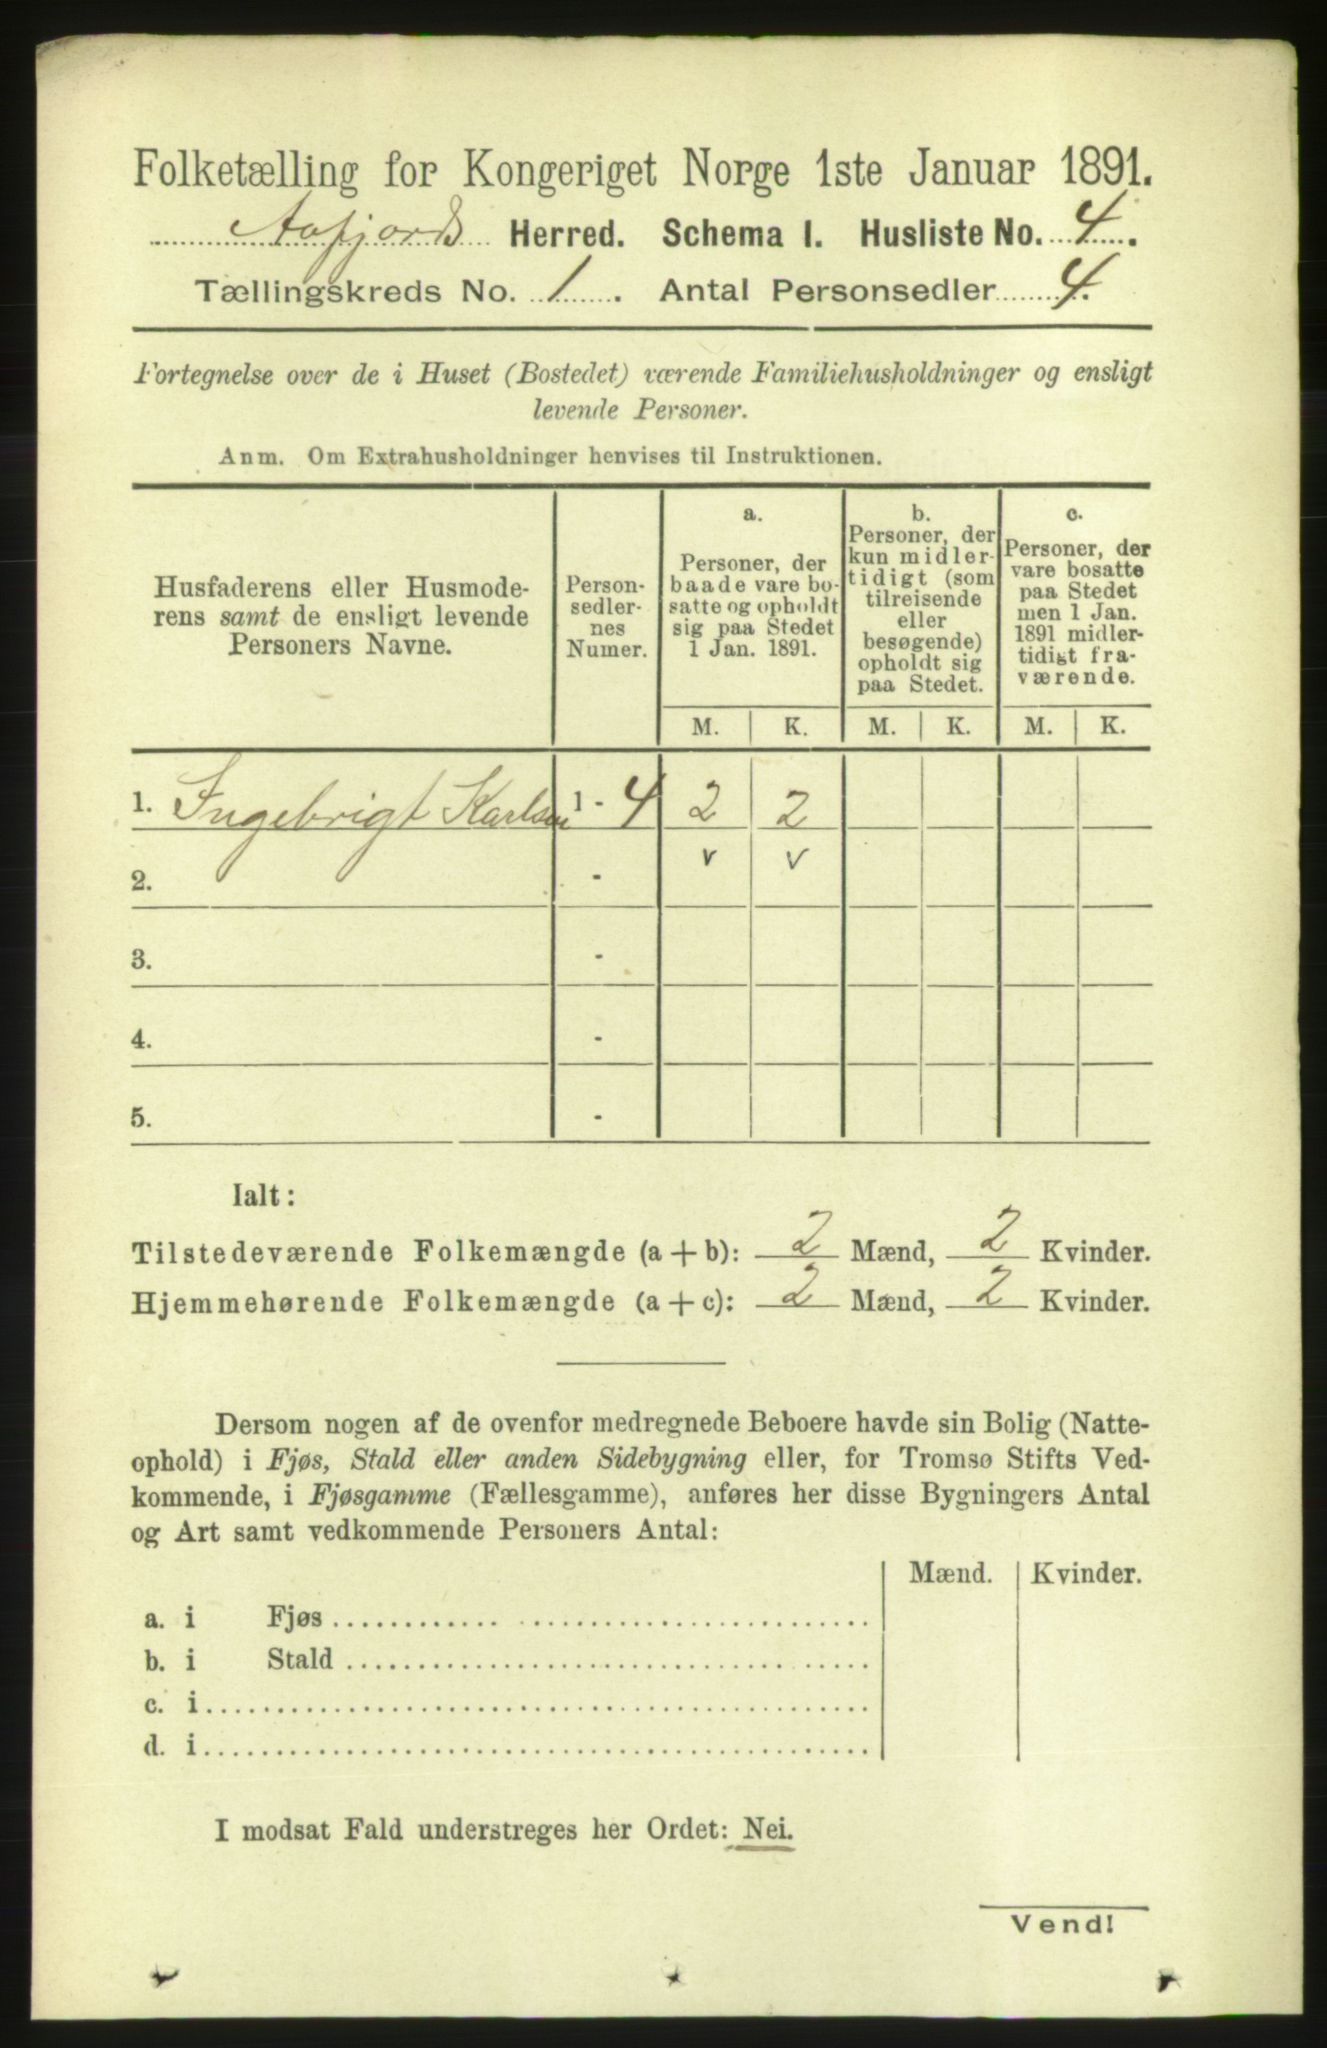 Folketælling for Kongeriget Norge 1ste Januar 1891.
Aafjords Herred. Schema I. Husliste No. 4.
Tællingskreds No. 1. Antal Personsedler 4.
Fortegnelse over de i Huset (Bostedet) værende Familiehusholdninger og ensligt
levende Personer.
Anm. Om Extrahusholdninger henvises til Instruktionen.
Husfaderens eller Husmode-
rens samt de ensligt levende
Personers Navne.
Person-
sedler-
nes
Numer.
a.
Personer, der
baade vare bo-
satte og opholdt
sig paa Stedet
1 Jan. 1891.
b.
Personer, der
kun midler-
tidigt (som
tilreisende
eller
besøgende)
opholdt sig
paa Stedet.
c.
Personer, der
vare bosatte
paa Stedet
men 1 Jan.
1891 midler-
tidigt fra-
værende.
M. K. M. K. M. K.
1. Ingebrigt Karlsen 1 - 4 2 2
2. - v v
3. -
4. -
5. -
Ialt:
Tilstedeværende Folkemængde (a + b): 2 Mænd, 2 Kvinder.
Hjemmehørende Folkemængde (a + c): 2 Mænd, 2 Kvinder.
Dersom nogen af de ovenfor medregnede Beboere havde sin Bolig (Natte-
ophold) i Fjøs, Stald eller anden Sidebygning eller, for Tromsø Stifts Ved-
kommende, i Fjøsgamme (Fællesgamme), anføres her disse Bygningers Antal
og Art samt vedkommende Personers Antal:
Mænd. Kvinder.
a. i Fjøs
b. i Stald
c. i
d. i
I modsat Fald understreges her Ordet: Nei.
Vend!